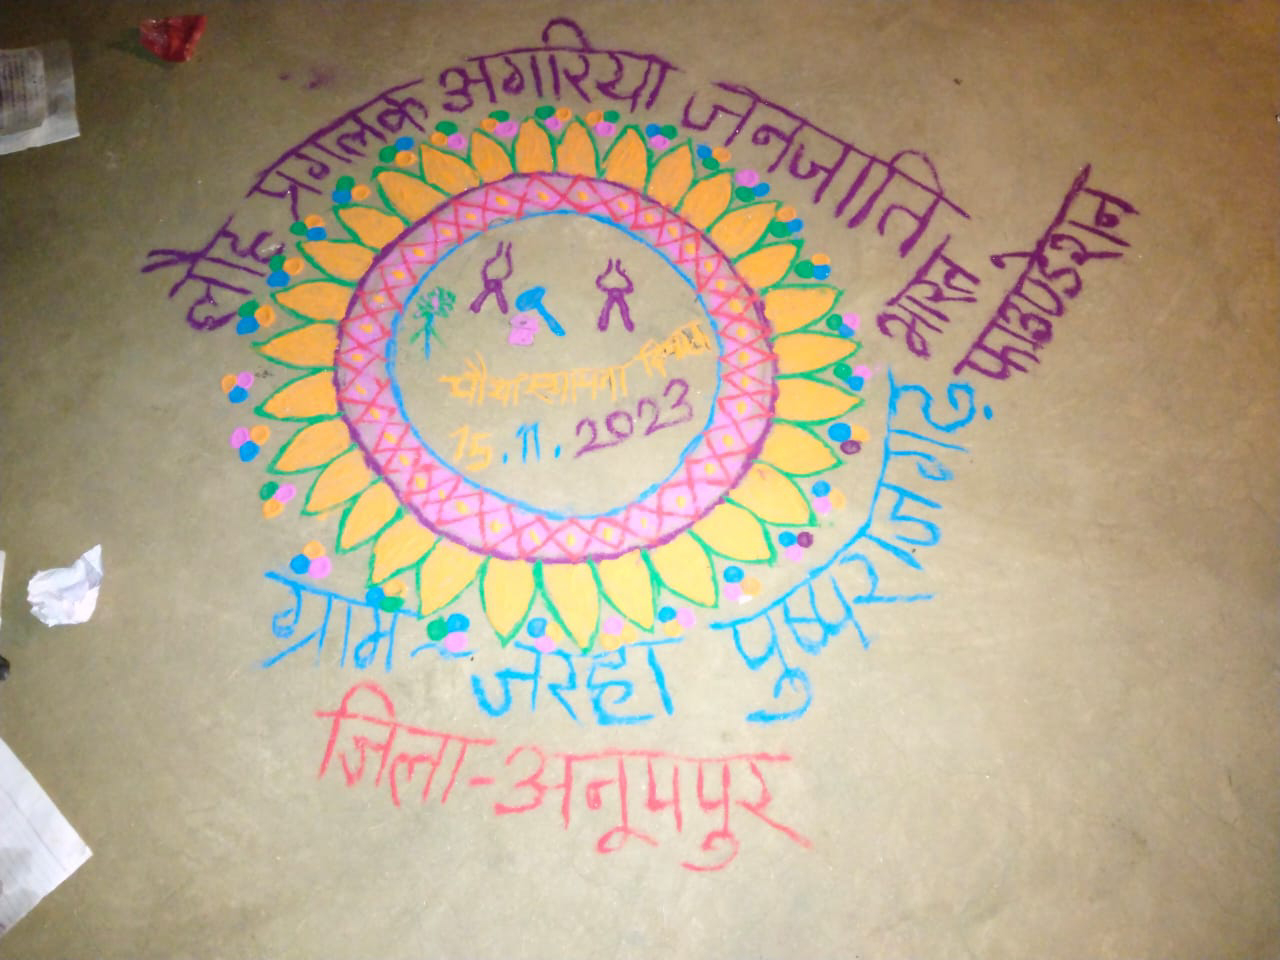 लौह प्रगलक अगरिया जनजाति
भारत
फाउण्डेशन
चौथा स्थापना दिवस
15.11.2023
ग्राम - जरहा पुष्पराजगढ़
जिला-अनूपपुर